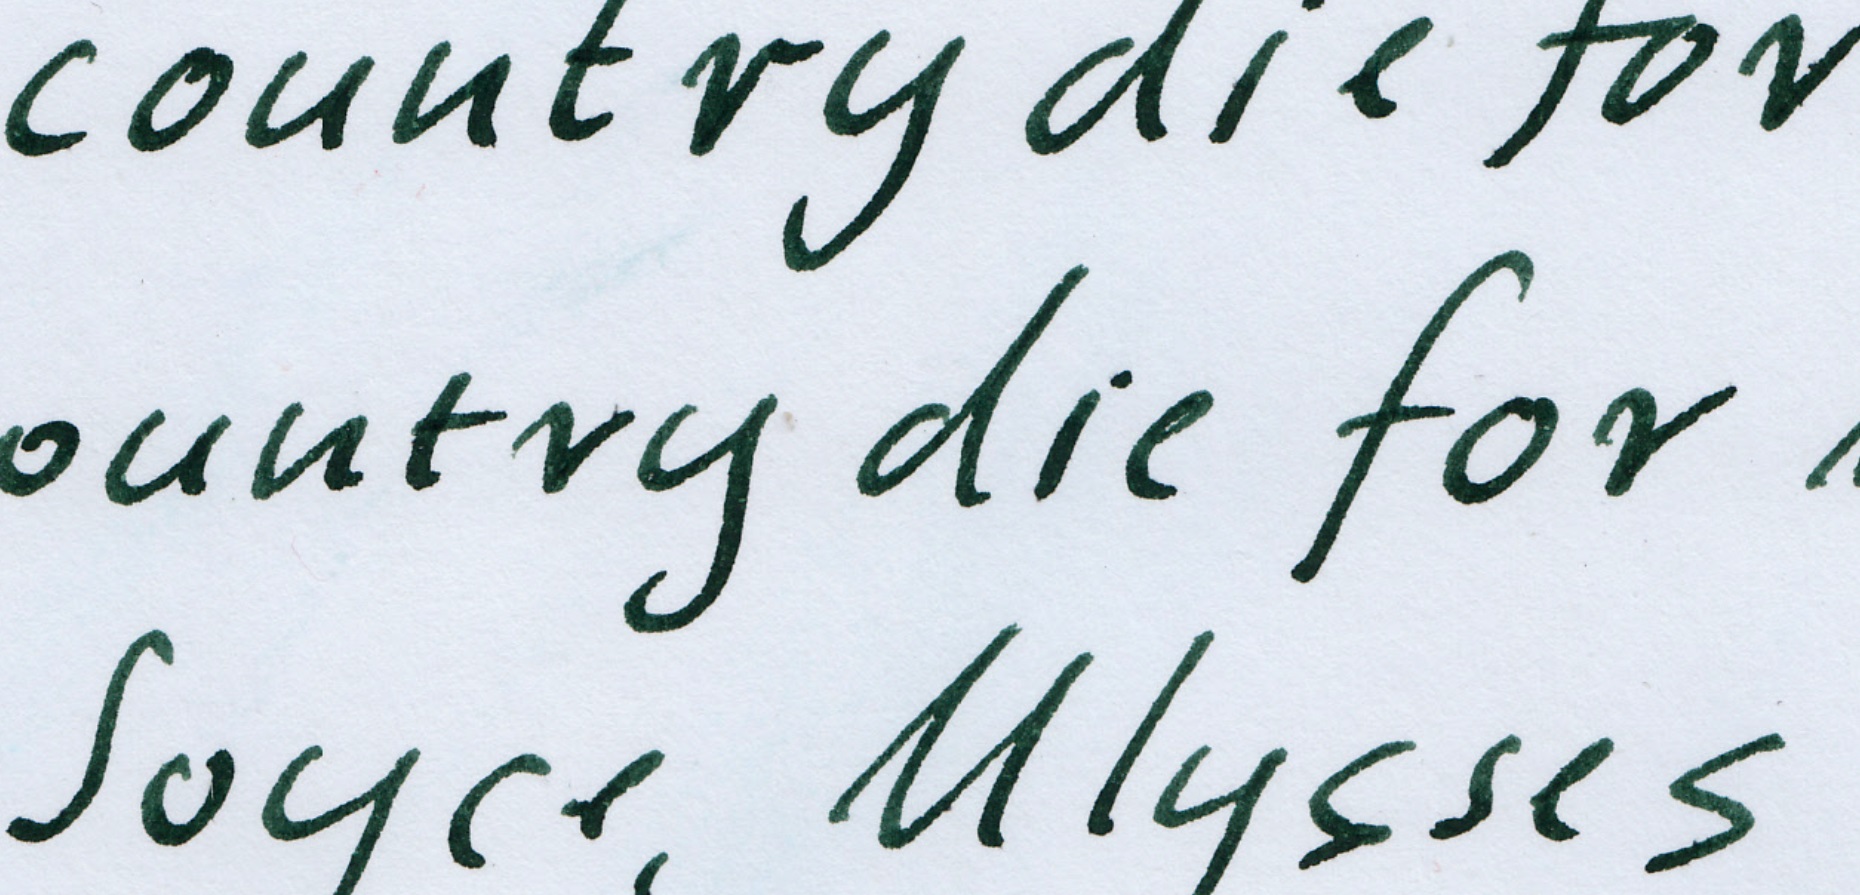 country die for
ountry die for
Joyce, Ulysses